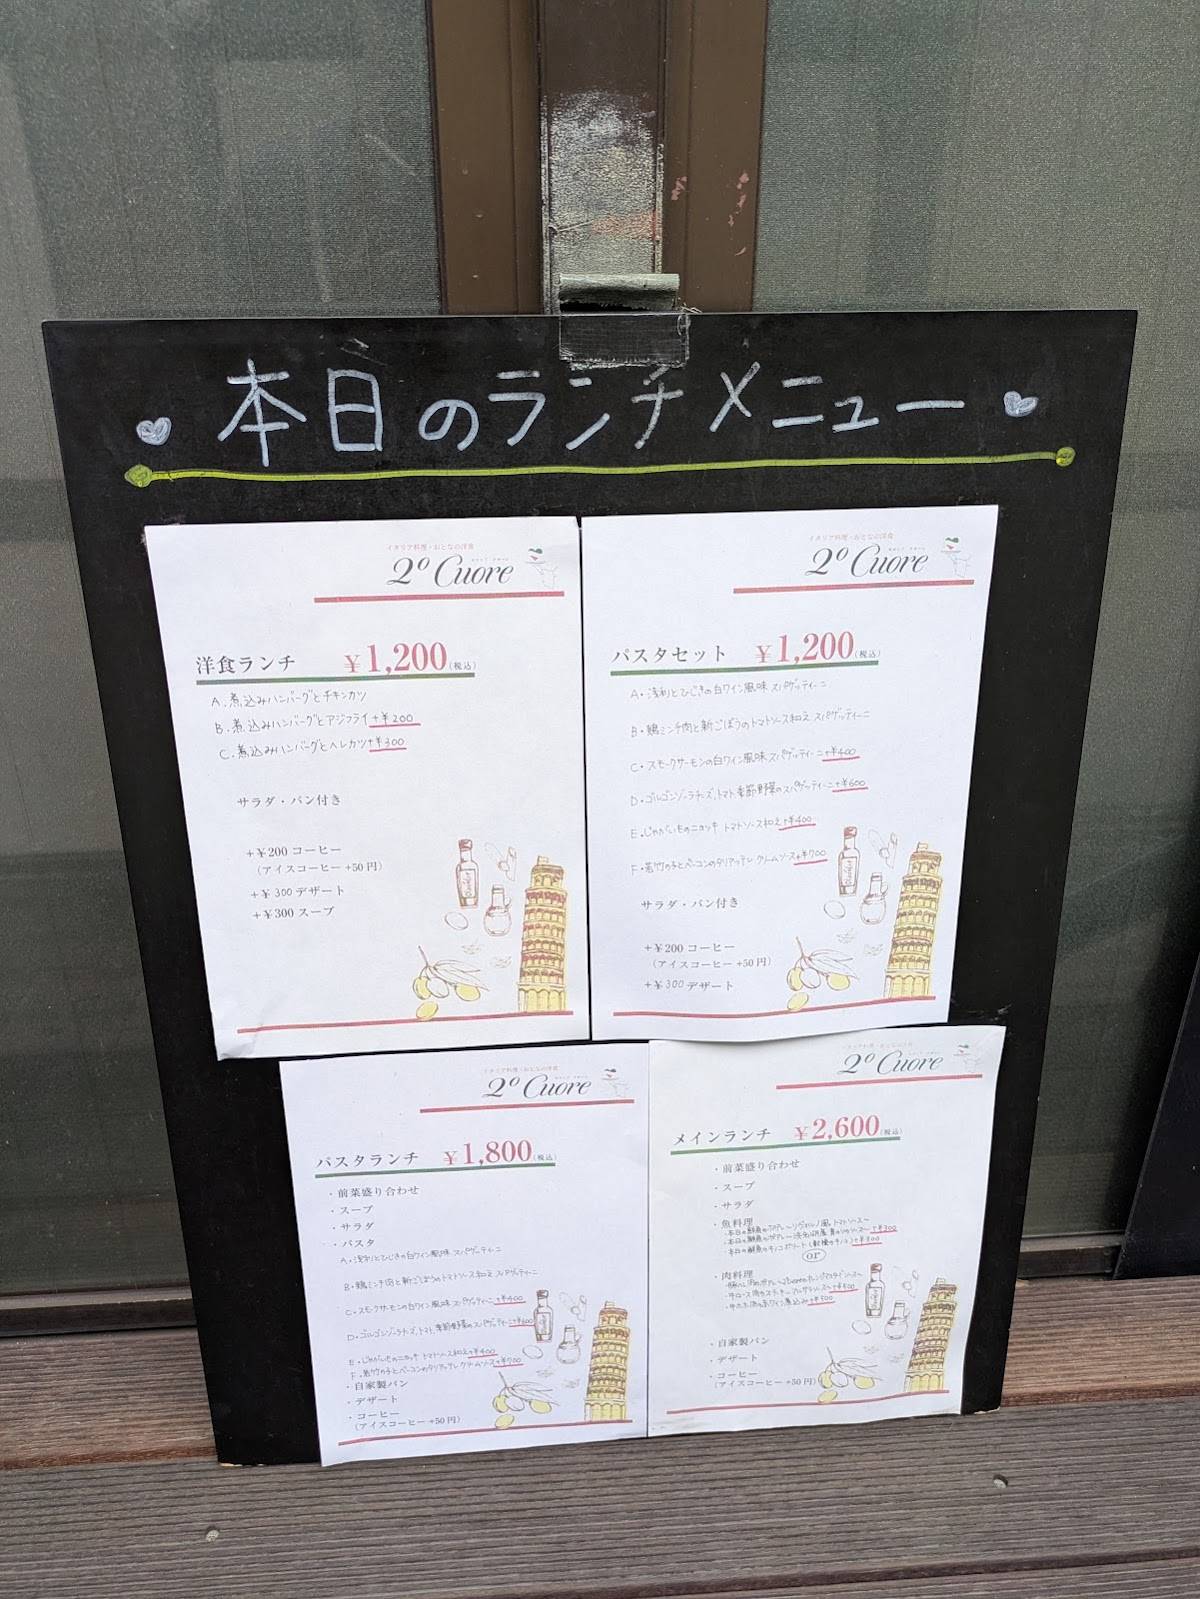 本日のランチメニュー
イタリア料理・おとなの洋食
2º Cuore
洋食ランチ ¥1,200(税込)
A.煮込みハンバーグとチキンカツ
B.煮込みハンバーグとアジフライ+¥200
C.煮込みハンバーグとヘレカツ+¥300
サラダ・パン付き
+¥200 コーヒー
(アイスコーヒー +50円)
+¥300 デザート
+¥300 スープ
イタリア料理・おとなの洋食
2º Cuore
パスタセット ¥1,200(税込)
A・浅利とひじきの白ワイン風味 スパゲッティーニ
B・鶏ミンチ肉と新ごぼうのトマトソース和え スパゲッティーニ
C・スモークサーモンの白ワイン風味 スパゲッティーニ+¥400
D・ゴルゴンゾーラチーズ,トマト,季節野菜のスパゲッティーニ+¥600
E・じゃがいものニョッキ トマトソース和え+¥400
F・若竹の子とベーコンのタリアッテレ クリームソース+¥700
サラダ・パン付き
+¥200 コーヒー
(アイスコーヒー +50円)
+¥300 デザート
イタリア料理・おとなの洋食
2º Cuore
パスタランチ ¥1,800(税込)
・前菜盛り合わせ
・スープ
・サラダ
・パスタ
A・浅利とひじきの白ワイン風味 スパゲッティーニ
B・鶏ミンチ肉と新ごぼうのトマトソース和え スパゲッティーニ
C・スモークサーモンの白ワイン風味 スパゲッティーニ+¥400
D・ゴルゴンゾーラチーズ,トマト,季節野菜のスパゲッティーニ+¥600
E・じゃがいものニョッキ トマトソース和え+¥400
F・若竹の子とベーコンのタリアッテレ クリームソース+¥700
・自家製パン
・デザート
・コーヒー
(アイスコーヒー +50円)
イタリア料理・おとなの洋食
2º Cuore
メインランチ ¥2,600(税込)
・前菜盛り合わせ
・スープ
・サラダ
・魚料理
・本日の鮮魚のソテー〜リヴォルノ風 トマトソース〜
・本日の鮮魚のソテー +¥300
・本日の鮮魚の +¥300
or
・肉料理
・豚ヒレ肉のソテー
・牛ロース肉のステーキ +¥500
・牛ホホ肉の赤ワイン煮込み+¥500
・自家製パン
・デザート
・コーヒー
(アイスコーヒー +50円)